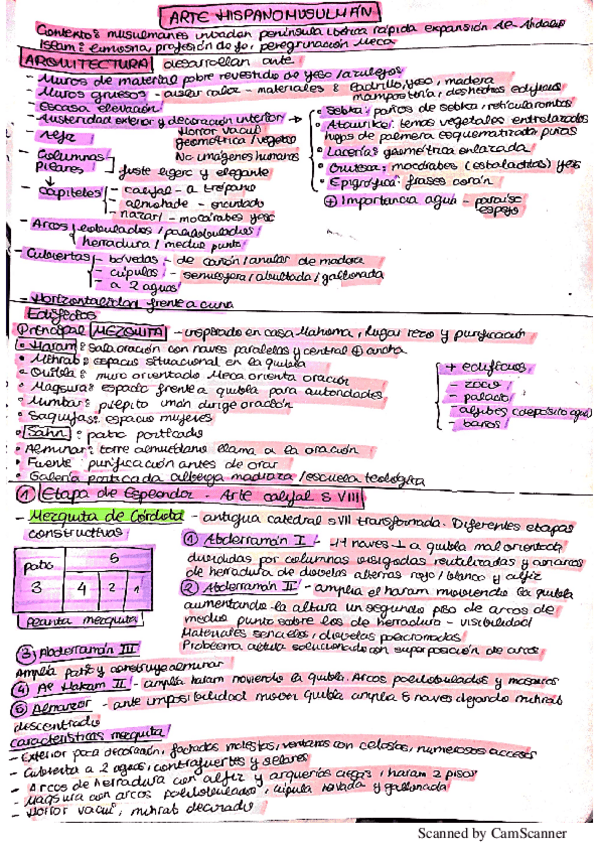 ARTE HISPANOMUSULMÁN
Contexto: musulmanes invaden península ibérica rápida expansión de Al-Andalus
Islam: limosna, profesión de fe, peregrinación Meca
ARQUITECTURA desarrollan arte
- Muros de material pobre revestido de yeso/azulejos
- Muros gruesos - aislar calor - materiales: ladrillo, yeso, madera
mampostería, deshechos edificios
- Escasa elevación
- Austeridad exterior y decoración interior →
Horror vacui
geométrica/vegetal
No imágenes humanas
• Sebka: paños de sebka, retícula rombos
• Ataurique: temas vegetales entrelazados
hojas de palmera esquematizada
• Lacería: geométrica enlazada
• mocárabes (estalactitas) yeso
• Epigráfica: frases corán
⊕ Importancia agua - paraíso
espejo
- Alfiz
- Columnas
Pilares
fuste ligero y elegante
→ capiteles
- califal - a trépano
- almohade
- nazarí - mocárabes yeso
- Arcos lobulados/polilobulados/
herradura/medio punto
- Cubiertas
- bóvedas - de cañón/anular de madera
- cúpulas - semiesfera/abultada/gallonada
- a 2 aguas
- Horizontalidad frente a
Edificios
Principal MEZQUITA - inspirado en casa Mahoma, lugar rezo y purificación
• Haram: sala oración con naves paralelas y central ⊕ ancha
• Mihrab: espacio situacional en la quibla
• Quibla: muro orientado Meca orienta oración
• Maqsura: espacio frente a quibla para autoridades
• Mimbar: púlpito imán dirige oración
• Saquifas: espacio mujeres
• Sahn: patio porticado
• Alminar: torre almuédano llama a la oración
• Fuente purificación antes de orar
• Galería porticada alberga madraza/escuela teológica
+ edificios
- zoco
- palacio
- aljibes (depósito agua)
- baños
① Etapa de Esplendor - Arte califal S VIII
- Mezquita de Córdoba - antigua catedral S VII transformada. Diferentes etapas
constructivas
patio
3
5
4
2
1
Planta mezquita
① Abderramán I - 11 naves ⊥ a quibla mal orientada,
divididas por columnas visigodas reutilizadas y con arcos
de herradura de dovelas alternas rojo/blanco y alfiz
② Abderramán II - amplía el haram moviendo la quibla
aumentando la altura un segundo piso de arcos de
medio punto sobre los de herradura - visibilidad
Materiales sencillos, dovelas policromadas
Problema altura solucionado con superposición de arcos
③ Abderramán III
Amplía patio y construye alminar
④ Al Hakam II - amplía haram moviendo la quibla. Arcos polilobulados y mosaicos
⑤ Almanzor - ante imposibilidad mover quibla amplía 8 naves dejando mihrab
descentrado
Características mezquita
- Exterior poca decoración, fachadas modestas, ventanas con celosías, numerosos accesos
- Cubierta a 2 aguas, contrafuertes y
- Arcos de herradura con alfiz y arquerías ciegas, haram 2 pisos
- Maqsura con arcos polilobulados, cúpula nervada y gallonada
- Horror vacui, mihrab decorado
Scanned by CamScanner